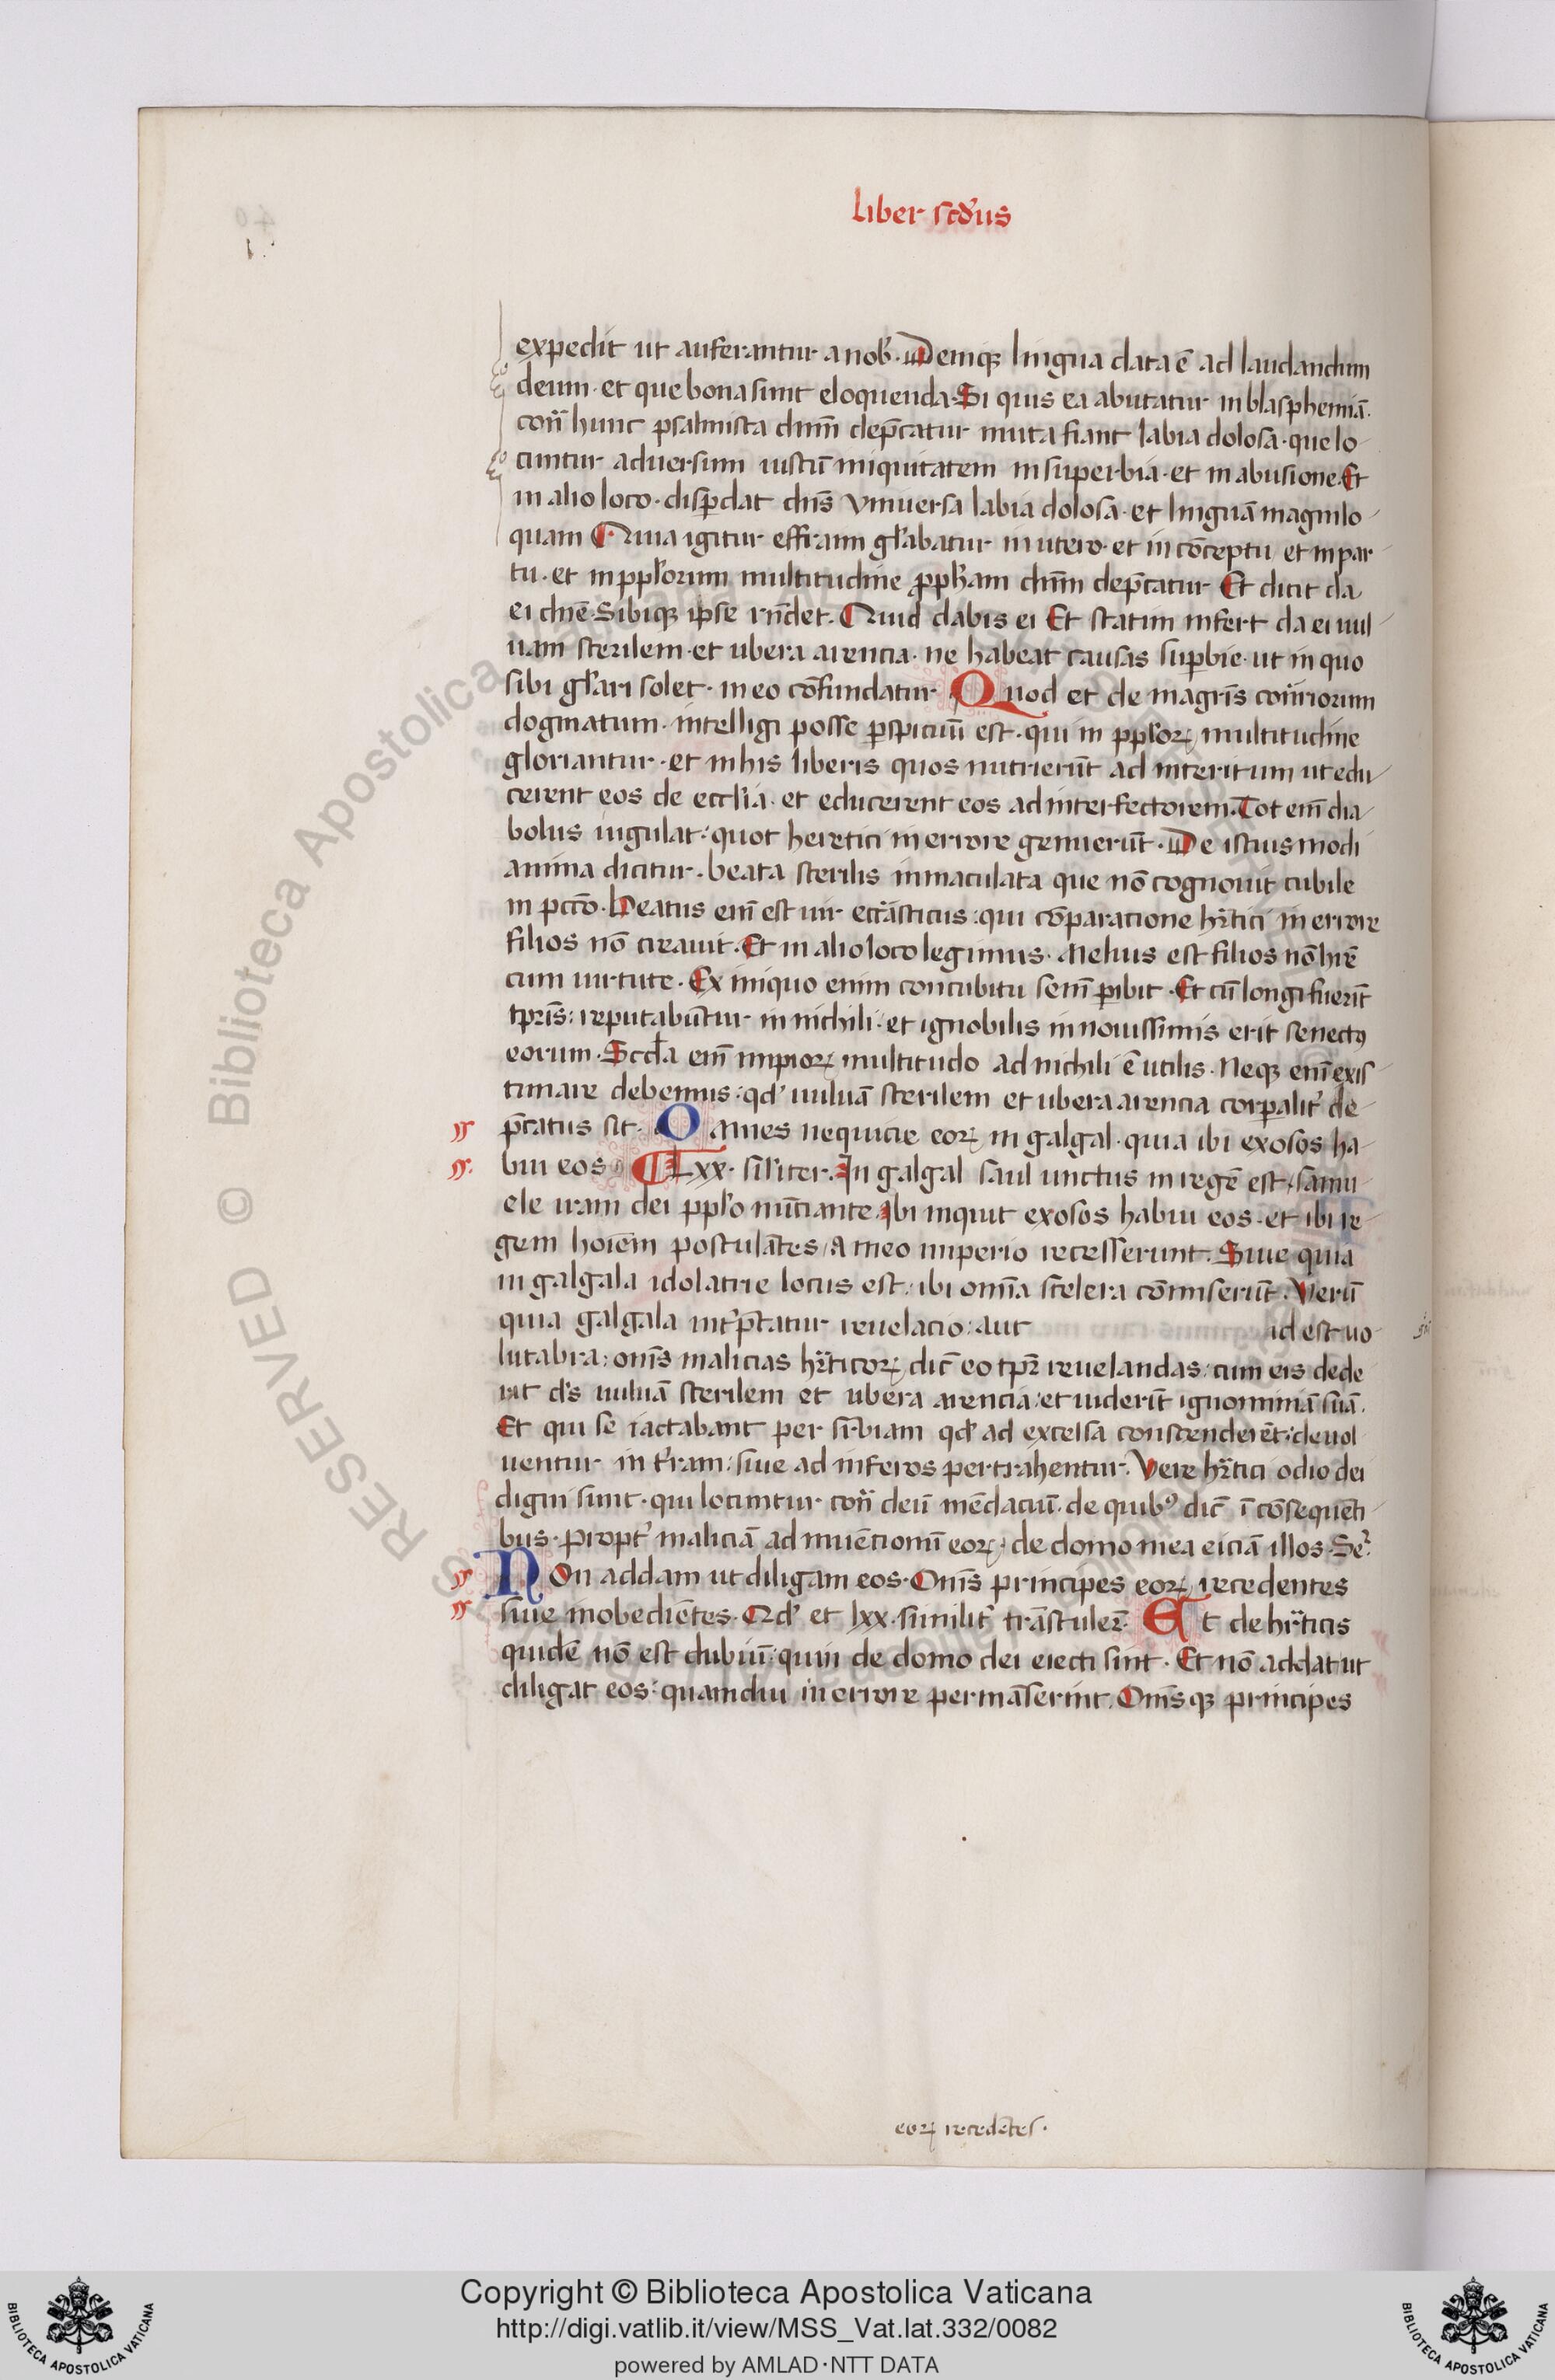 liber scd'us
expedit ut auferantur a nob̉. Deniqꝫ lingua data ē ad laudandum
deum. et que bona sunt eloquenda. Si quis ea abutatur in blasphemiā.
cont̄ hunc psalmista dnm̄ dep̄catur muta fiant labia dolosa. que lo-
cuntur aduersum iustū iniquitatem in superbia. et in abusione. Et
in alio loco. disꝑdat dn̄s vniuersa labia dolosa. et linguā magnilo-
quam Quia igitur effraim gl̄abatur in utero. et in cōceptu et in par-
tu. et in ppl̄orum multitudine ꝓph̄am dnm̄ dep̄catur Et dicit da
ei dn̄e. Sibiqꝫ ip̄se rn̄det. Quid dabis ei Et statim infert da ei uul-
uam sterilem. et ubera arencia. ne habeat causas suꝑbie. ut in quo
sibi gl̄ari solet. in eo cōfundatur Quod et de magr̄is cont̄riorum
dogmatum. intelligi posse ꝑspicuū est. qui in ppl̄oꝝ multitudine
gloriantur. et in his liberis quos nutrierūt ad interitum ut edu-
cerent eos de eccl̄ia. et educerent eos ad interfectorem. Tot em̄ dia-
bolus iugulat: quot heretici in errore genuerūt. De istiusmodi
anima dicitur. beata sterilis inmaculata que nō cognouit cubile
in pcc̄o. Beatus em̄ est uir eccl̄asticus: qui cōparacione hr̄tici in errore
filios nō creauit. Et in alio loco legimus. Melius est filios nō hr̄e
cum uirtute. Ex iniquo enim concubitu sem̄ ꝑibit. Et cū longi fuerīt
tꝑris: reputabūtur in nichili: et ignobilis in nouissimis erit senectꝰ
eorum. Scd̄a em̄ impioꝝ multitudo ad nichili ē utilis. Neqꝫ em̄ exis-
timare debemus: qd' uuluā sterilem et ubera arencia corꝑalit̉ de-
p̄catus sit. Omnes nequicie eoꝝ in galgal. quia ibi exosos ha-
bui eos Lxx. sil̄iter. In galgal saul unctus in regē est, samu-
ele iram dei ppl̄o nūciante. Ibi inquit exosos habui eos. et ibi re-
gem hoīem postulātes, a meo imperio recesserunt. Siue quia
in galgala idolatrie locus est: ibi om̄ia scelera cōmiserūt. Verū
quia galgala int̉p̄tatur reuelacio: aut id est uo-
lutabra: om̄s malicias hr̄ticoꝝ dic̄ eo tꝑe reuelandas: cum eis dede
rit d's uuluā sterilem et ubera arencia: et uiderīt ignominiā suā.
Et qui se iactabant per suꝑbiam qd' ad excelsa conscenderēt: deuol
uentur in t̉ram: siue ad inferos pertrahentur. Vere hr̄tici odio dei
digni sunt. qui locuntur cont̄ deū mēdaciū. de quibꝰ dic̄ ī cōsequēti-
bus. propt̉ maliciā ad inuēcionū eoꝝ. de domo mea eiciā illos. Se̊.
Non addam ut diligam eos. Om̄s principes eoꝝ recedentes
siue inobediētes. Qd' et lxx. similit̉ trāstuler̄. Et de hr̄ticis
quidē nō est dubiū: quin de domo dei eiecti sint. Et nō addat ut
diligat eos: quamdiu in errore permāserint. Om̄sqꝫ principes
eoꝝ recedētes.
Copyright © Biblioteca Apostolica Vaticana
http://digi.vatlib.it/view/MSS_Vat.lat.332/0082
powered by AMLAD·NTT DATA
BIBLIOTECA APOSTOLICA VATICANA
BIBLIOTECA APOSTOLICA VATICANA